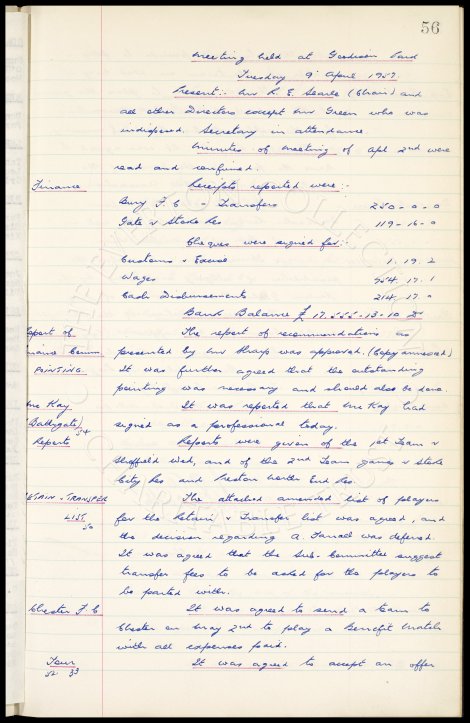 56
Meeting held at Goodison Park
Tuesday 9th April 1957
Present:- Mr R. E. Searle (Chair) and
all other Directors except Mr Green who was
indisposed. Secretary in attendance
Minutes of meeting of Apl 2nd were
read and confirmed.
Finance Receipts reported were:-
Bury F.C - Transfers 250-0-0
Gate v Stoke Res 119-16-0
Cheques were signed for:-
Customs & Excise 1.19.2
Wages 954.17.1
Cash Disbursements 214.17.0
Bank Balance £17,555-13-10 Dr
Report of The report of recommendations as
Finance Comm presented by Mr Sharp was approved. (Copy annexed)
PAINTING. It was further agreed that the outstanding
painting was necessary and should also be done
It was reported that Mr Kay had
(Bathgate) 54 signed as a professional today.
Reports Reports were given of the 1st Team v
Sheffield Wed, and of the 2nd Team games v Stoke
City Res and Preston North End Res.
RETAIN & TRANSFER The attached amended list of players
LIST 50 for the Retain & Transfer list was agreed, and
the decision regarding A. Farrall was deferred.
It was agreed that the Sub-Committee suggest
transfer fees to be asked for the players to
be parted with.
Chester F.C It was agreed to send a team to
Chester on May 2nd to play a Benefit Match
with all expenses paid.
Tour It was agreed to accept an offer
52 53